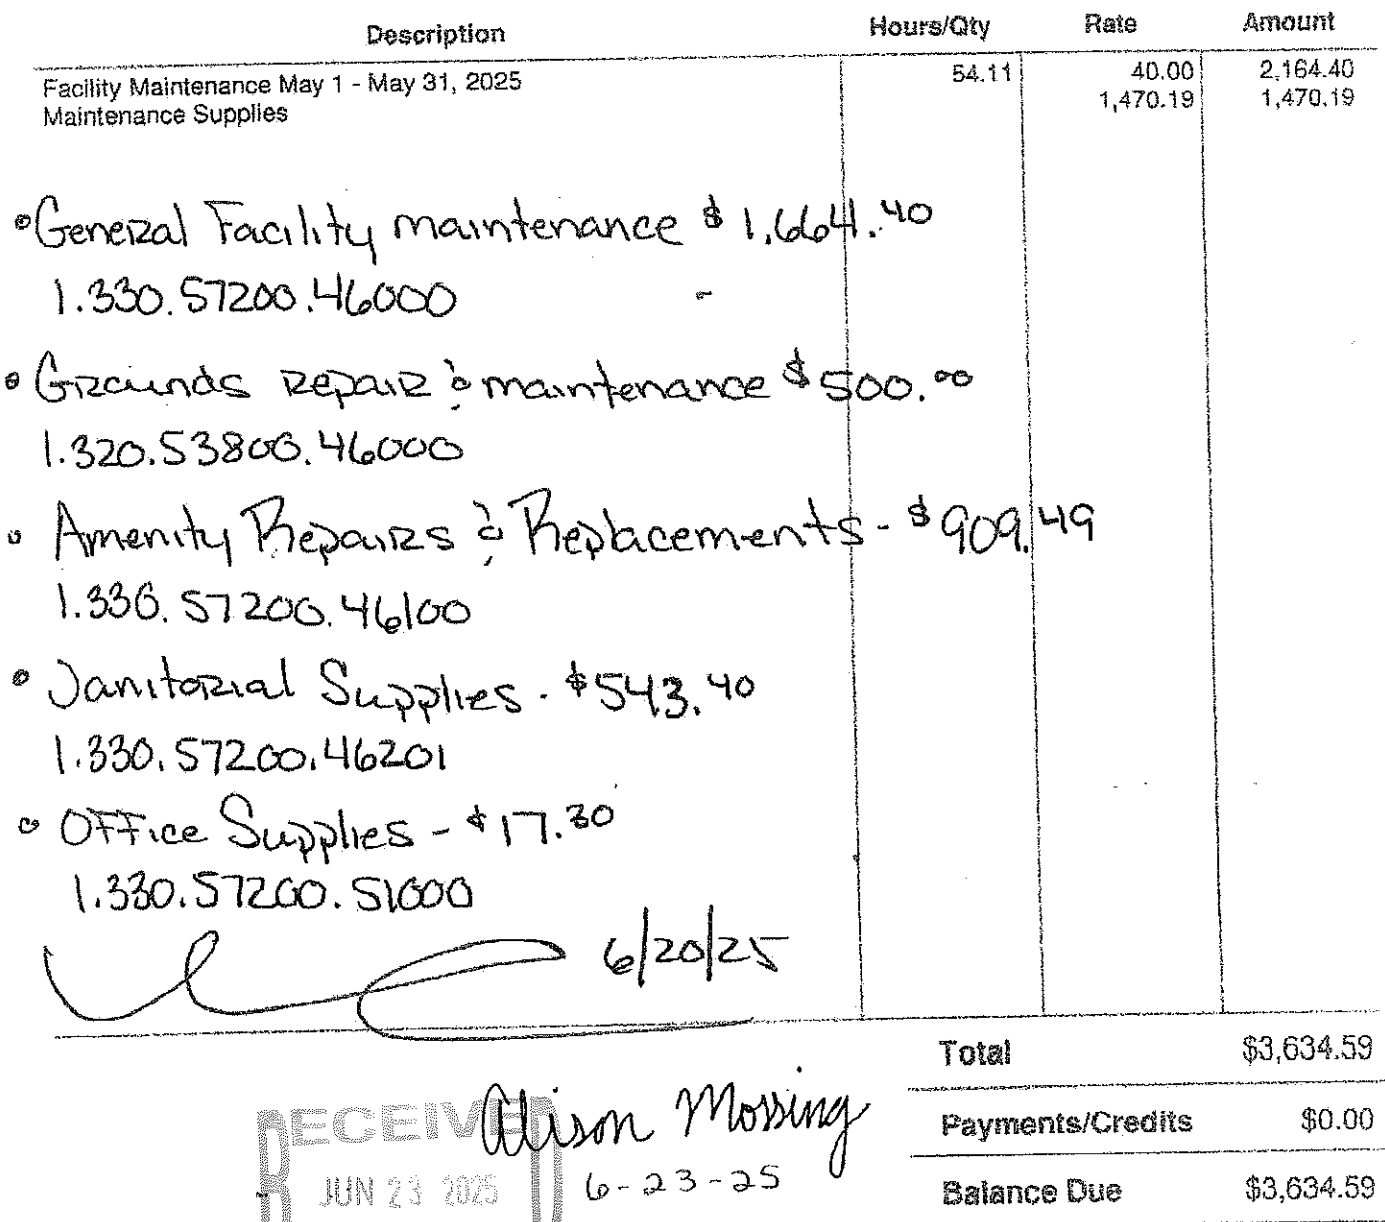 Description Hours/Qty Rate Amount
Facility Maintenance May 1 - May 31, 2025 54.11 40.00 2,164.40
Maintenance Supplies 1,470.19 1,470.19
• General Facility maintenance $1,664.40
1.330.57200.46000
• Grounds repair & maintenance $500.00
1.320.53800.46000
• Amenity Repairs & Replacements - $909.49
1.330.57200.46100
• Janitorial Supplies - $543.40
1.330.57200.46201
• Office Supplies - $17.30
1.330.57200.51000
6/20/25
Total $3,634.59
Alison Mossing
Payments/Credits $0.00
RECEIVED
JUN 23 2025
6-23-25
Balance Due $3,634.59